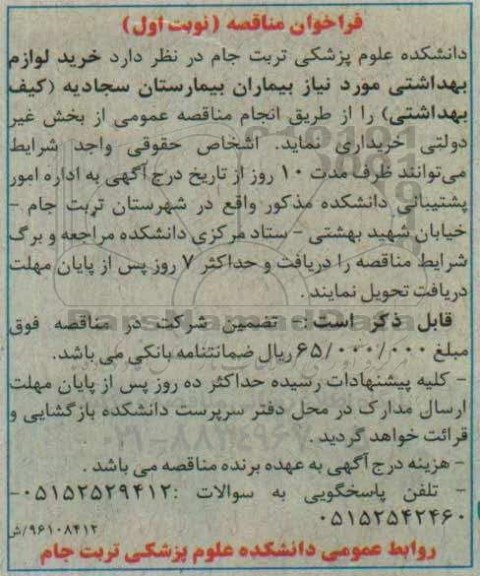 فراخوان مناقصه (نوبت اول)
دانشکده علوم پزشکی تربت جام در نظر دارد خرید لوازم
بهداشتی مورد نیاز بیماران بیمارستان سجادیه (کیف
بهداشتی) را از طریق انجام مناقصه عمومی از بخش غیر
دولتی خریداری نماید. اشخاص حقوقی واجد شرایط
می‌توانند ظرف مدت ۱۰ روز از تاریخ درج آگهی به اداره امور
پشتیبانی دانشکده مذکور واقع در شهرستان تربت جام -
خیابان شهید بهشتی - ستاد مرکزی دانشکده مراجعه و برگ
شرایط مناقصه را دریافت و حداکثر ۷ روز پس از پایان مهلت
دریافت تحویل نمایند.
قابل ذکر است:- تضمین شرکت در مناقصه فوق
مبلغ ۶۵/۰۰۰/۰۰۰ ریال ضمانتنامه بانکی می باشد.
- کلیه پیشنهادات رسیده حداکثر ده روز پس از پایان مهلت
ارسال مدارک در محل دفتر سرپرست دانشکده بازگشایی و
قرائت خواهد گردید.
- هزینه درج آگهی به عهده برنده مناقصه می باشد.
- تلفن پاسخگویی به سوالات :۰۵۱۵۲۵۲۹۴۱۲-
۰۵۱۵۲۵۴۲۴۶۰
۹۶۱۰۸۴۱۲/ش
روابط عمومی دانشکده علوم پزشکی تربت جام
ParsNamadData
۰۲۱-۸۸۳۴۹۶۷